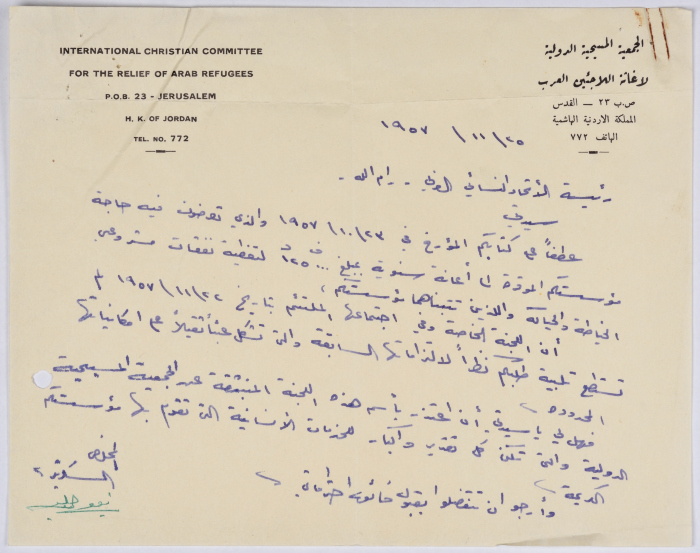 INTERNATIONAL CHRISTIAN COMMITTEE
FOR THE RELIEF OF ARAB REFUGEES
P.O.B. 23 - JERUSALEM
H. K. OF JORDAN
TEL. NO. 772
الجمعية المسيحية الدولية
لاغاثة اللاجئين العرب
ص.ب ٢٣ — القدس
المملكة الاردنية الهاشمية
الهاتف ٧٧٢
٢٥ / ١١ / ١٩٥٧
رئيسة الأتحاد النسائي العربي - رام الله -
سيدتي
عطفاً على كتابكم المؤرخ في ٢٣/١٠/١٩٥٧ والذي تعرضون فيه حاجة
مؤسستكم الموقرة الى أعانة سنوية بمبلغ ١٢٥ لتغطية نفقات مشروعي
الخياطة والحياكة واللذين تتبناهما مؤسستكم،
أن اللجنة الخاصة وفي اجتماعها الملتئم بتاريخ ٢٢/١١/١٩٥٧ لم
تستطع تلبية طلبكم نظراً لالتزاماتها السابقة والتي تشكل عبئاً ثقيلاً على امكانياتها
المحدودة،
فهل لي يا سيدتي أن اعتذر بأسم هذه اللجنة المنبثقة عن الجمعية المسيحية
الدولية والتي تكن كل تقدير وأكبار للخدمات الأنسانية التي تقوم بها مؤسستكم
الكريمة،
وأرجو ان تتفضلوا بقبول فائق احتراماتي،
المخلص
السكرتير،